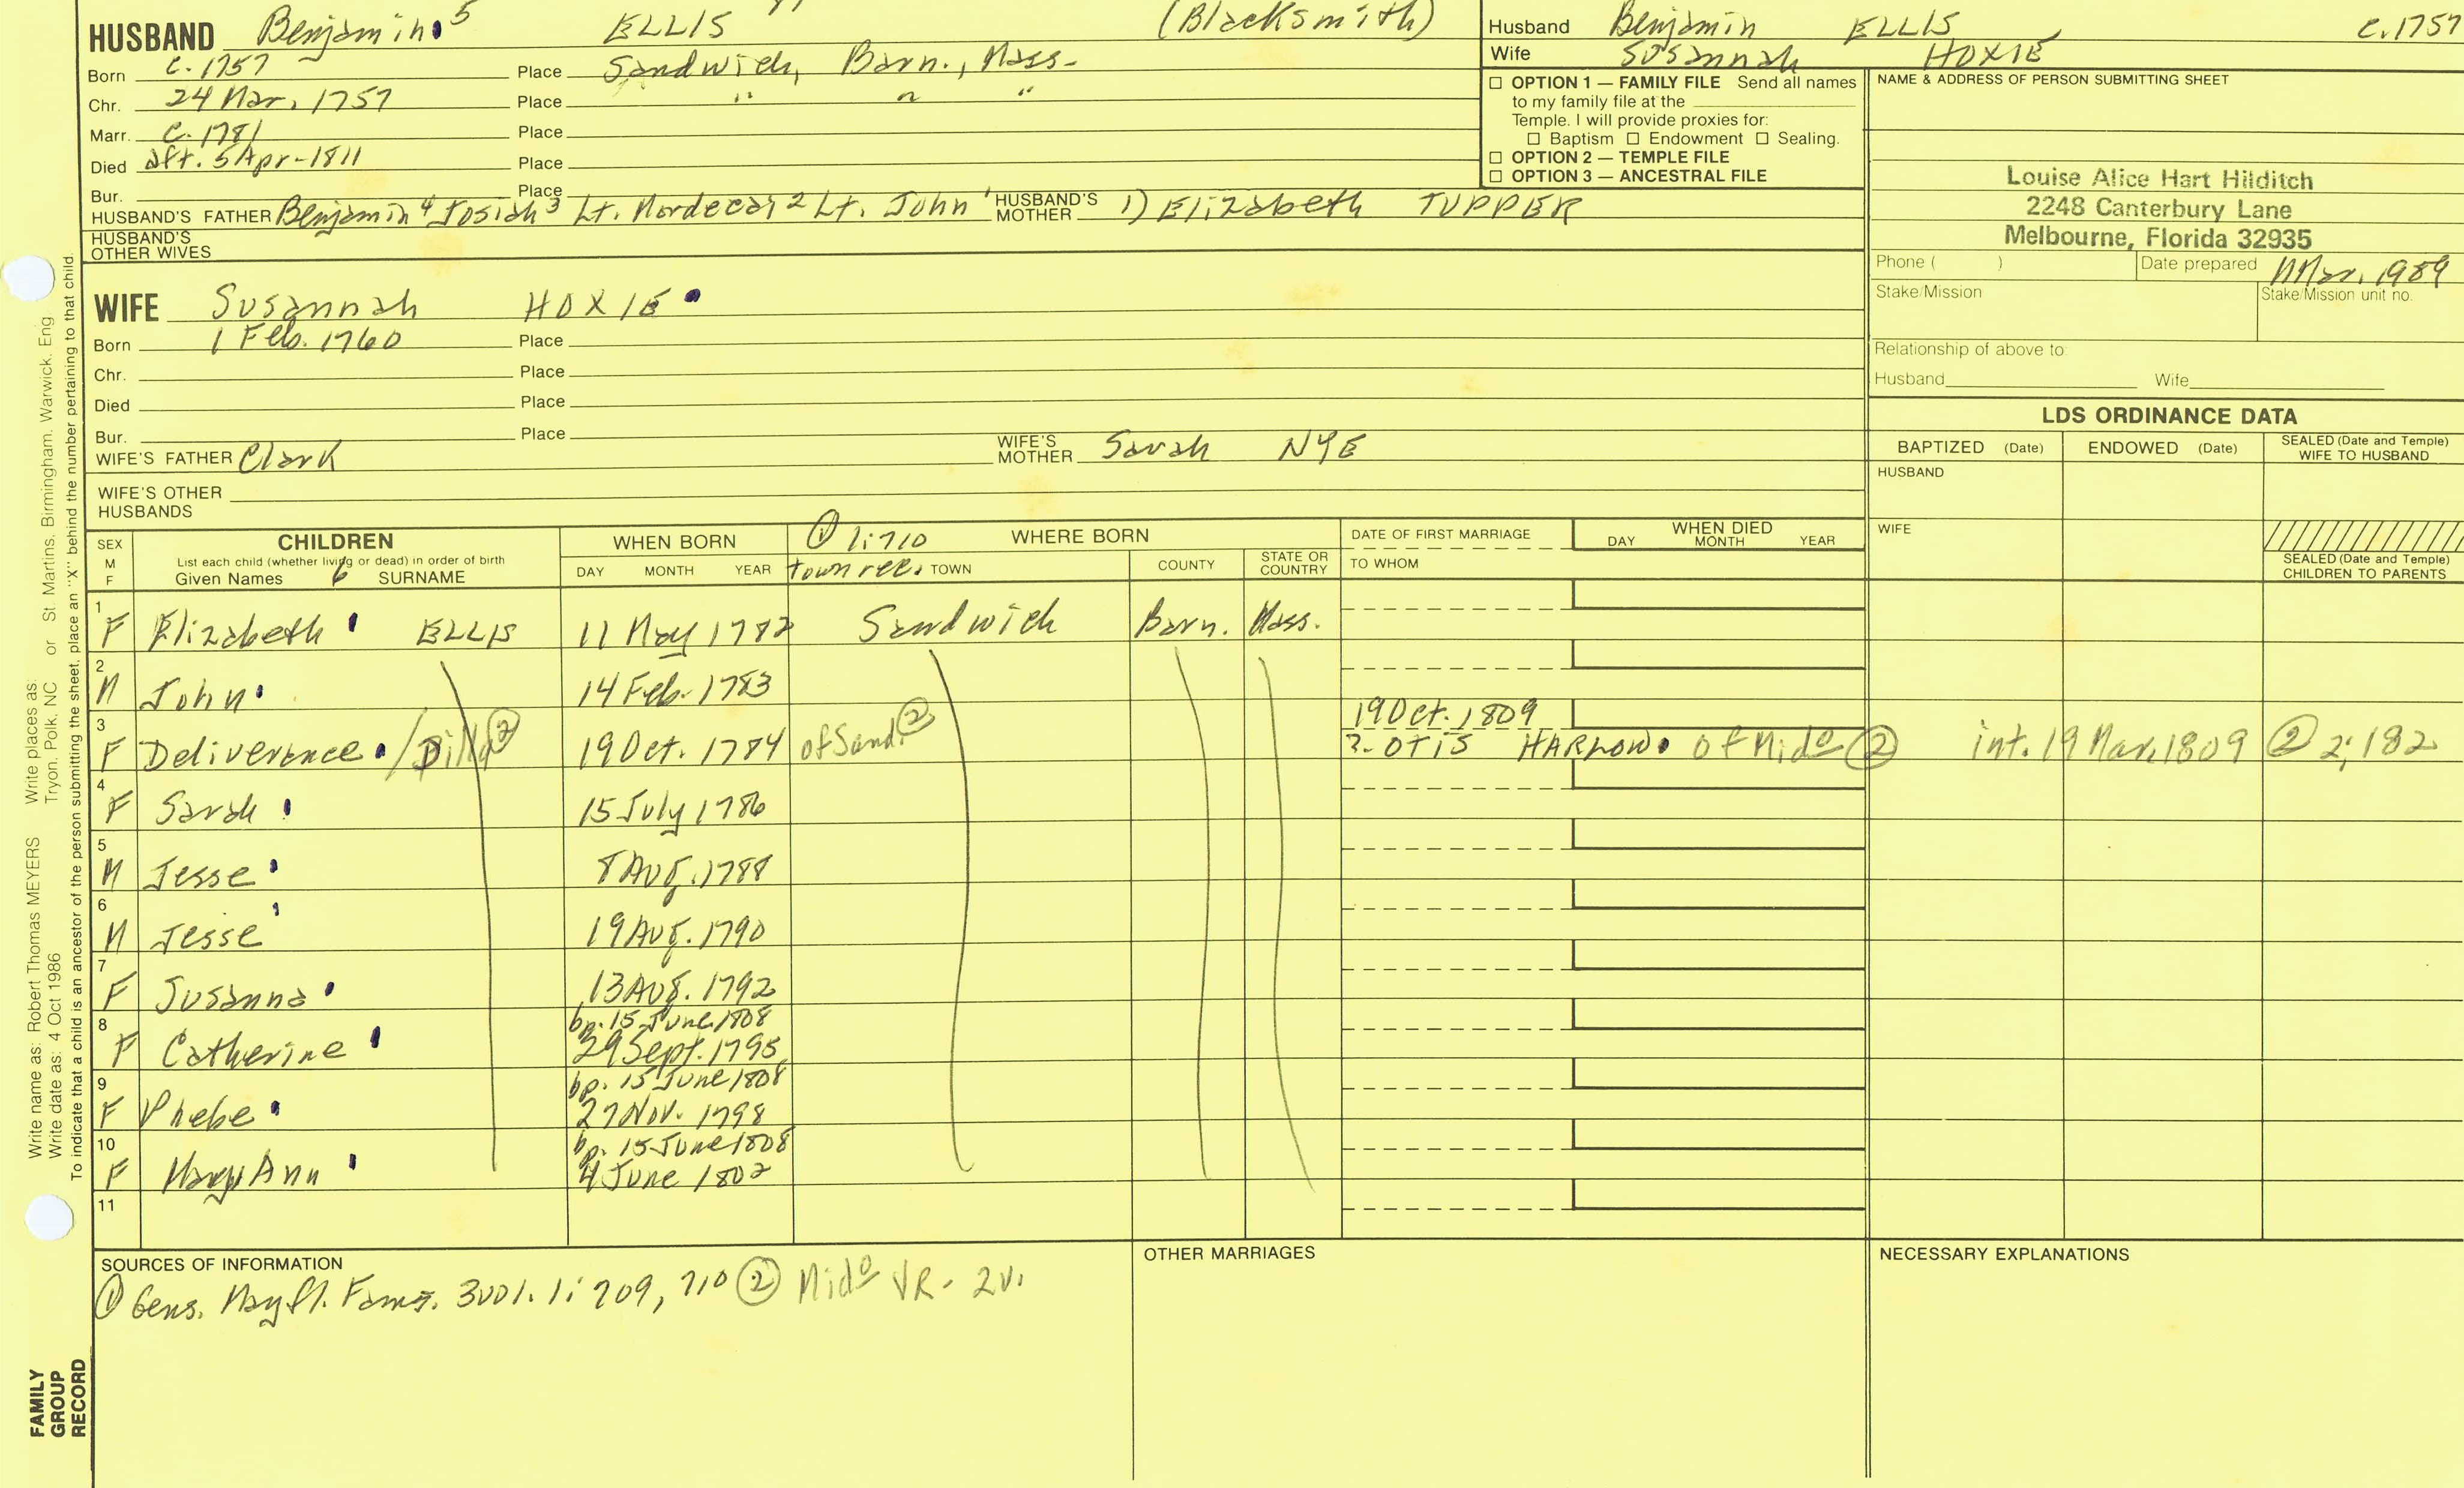 HUSBAND Benjamin 5 ELLIS (Blacksmith)
Born c. 1757 Place Sandwich, Barn., Mass.
Chr. 24 Mar. 1757 Place " " "
Marr. c. 1781 Place
Died aft. 5 Apr-1811 Place
Bur. Place
HUSBAND'S FATHER Benjamin 4 Josiah 3 Lt. Mordecai 2 Lt. John 1 HUSBAND'S MOTHER 1) Elizabeth TUPPER
HUSBAND'S OTHER WIVES
Husband Benjamin ELLIS c. 1757
Wife Susannah HOXIE
☐ OPTION 1 — FAMILY FILE Send all names
to my family file at the
Temple. I will provide proxies for:
☐ Baptism ☐ Endowment ☐ Sealing.
☐ OPTION 2 — TEMPLE FILE
☐ OPTION 3 — ANCESTRAL FILE
NAME & ADDRESS OF PERSON SUBMITTING SHEET
Louise Alice Hart Hilditch
2248 Canterbury Lane
Melbourne, Florida 32935
Phone ( ) Date prepared Mar. 1989
Stake/Mission Stake/Mission unit no.
Relationship of above to:
Husband Wife
WIFE Susannah HOXIE
Born 1 Feb. 1760 Place
Chr. Place
Died Place
Bur. Place
WIFE'S FATHER Clark WIFE'S MOTHER Sarah NYE
WIFE'S OTHER HUSBANDS
LDS ORDINANCE DATA
BAPTIZED (Date) ENDOWED (Date) SEALED (Date and Temple) WIFE TO HUSBAND
HUSBAND
WIFE
SEALED (Date and Temple) CHILDREN TO PARENTS
SEX M F
CHILDREN
List each child (whether living or dead) in order of birth
Given Names 6 SURNAME
WHEN BORN
DAY MONTH YEAR
① 1:710 WHERE BORN
town rec. TOWN COUNTY STATE OR COUNTRY
DATE OF FIRST MARRIAGE
TO WHOM
WHEN DIED
DAY MONTH YEAR
1 F Elizabeth ELLIS 11 May 1782 Sandwich Barn. Mass.
2 M John 14 Feb. 1783
3 F Deliverence / Dilla ② 19 Oct. 1784 of Sand. ② 19 Oct. 1809
R. OTIS HARLOW of Mido ② int. 19 Mar. 1809 ② 2:182
4 F Sarah 15 July 1786
5 M Jesse 8 Aug. 1788
6 M Jesse 19 Aug. 1790
7 F Susanna 13 Aug. 1792
8 F Catherine bp. 15 June 1808
29 Sept. 1795
9 F Phebe bp. 15 June 1808
27 Nov. 1798
10 F Mary Ann bp. 15 June 1808
4 June 1802
11
SOURCES OF INFORMATION
① Gens. Mayfl. Fams. 3vol. 1: 709, 710 ② Mido VR - 2v.
OTHER MARRIAGES
NECESSARY EXPLANATIONS
Write name as: Robert Thomas MEYERS Write places as:
Write date as: 4 Oct 1986 Tryon, Polk, NC or St Martins, Birmingham, Warwick, Eng
To indicate that a child is an ancestor of the person submitting the sheet, place an "X" behind the number pertaining to that child.
FAMILY
GROUP
RECORD